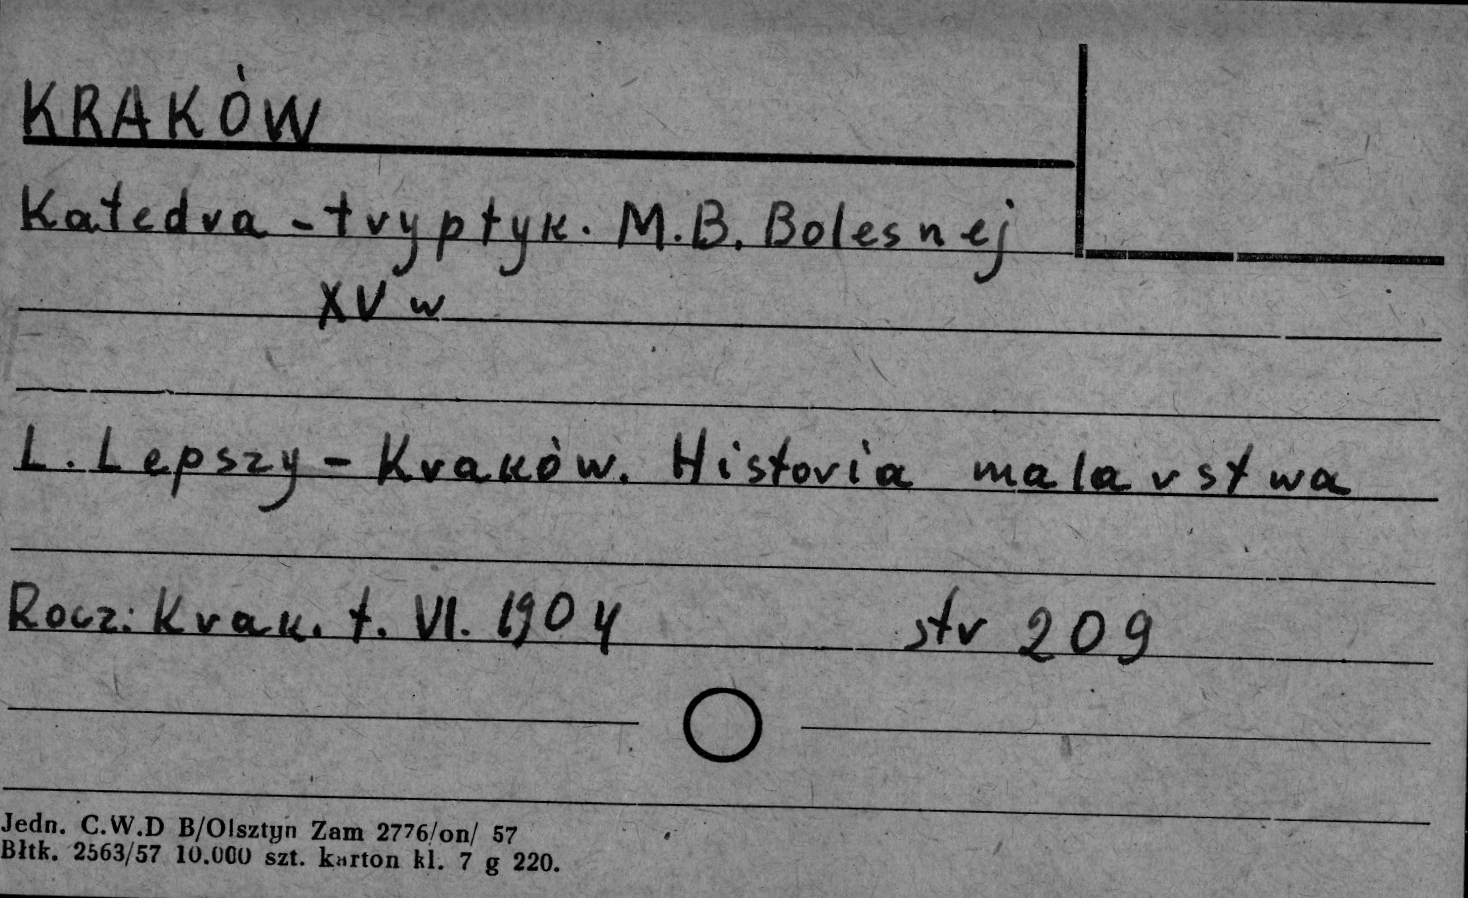 KRAKÓW
Katedra - tryptyk. M.B. Bolesnej
XV w
L. Lepszy - Kraków. Historia malarstwa
Rocz: Krak. t. VI. 1904 str 209
Jedn. C.W.D B/Olsztyn Zam 2776/on/ 57
Błtk. 2563/57 10.000 szt. karton kl. 7 g 220.